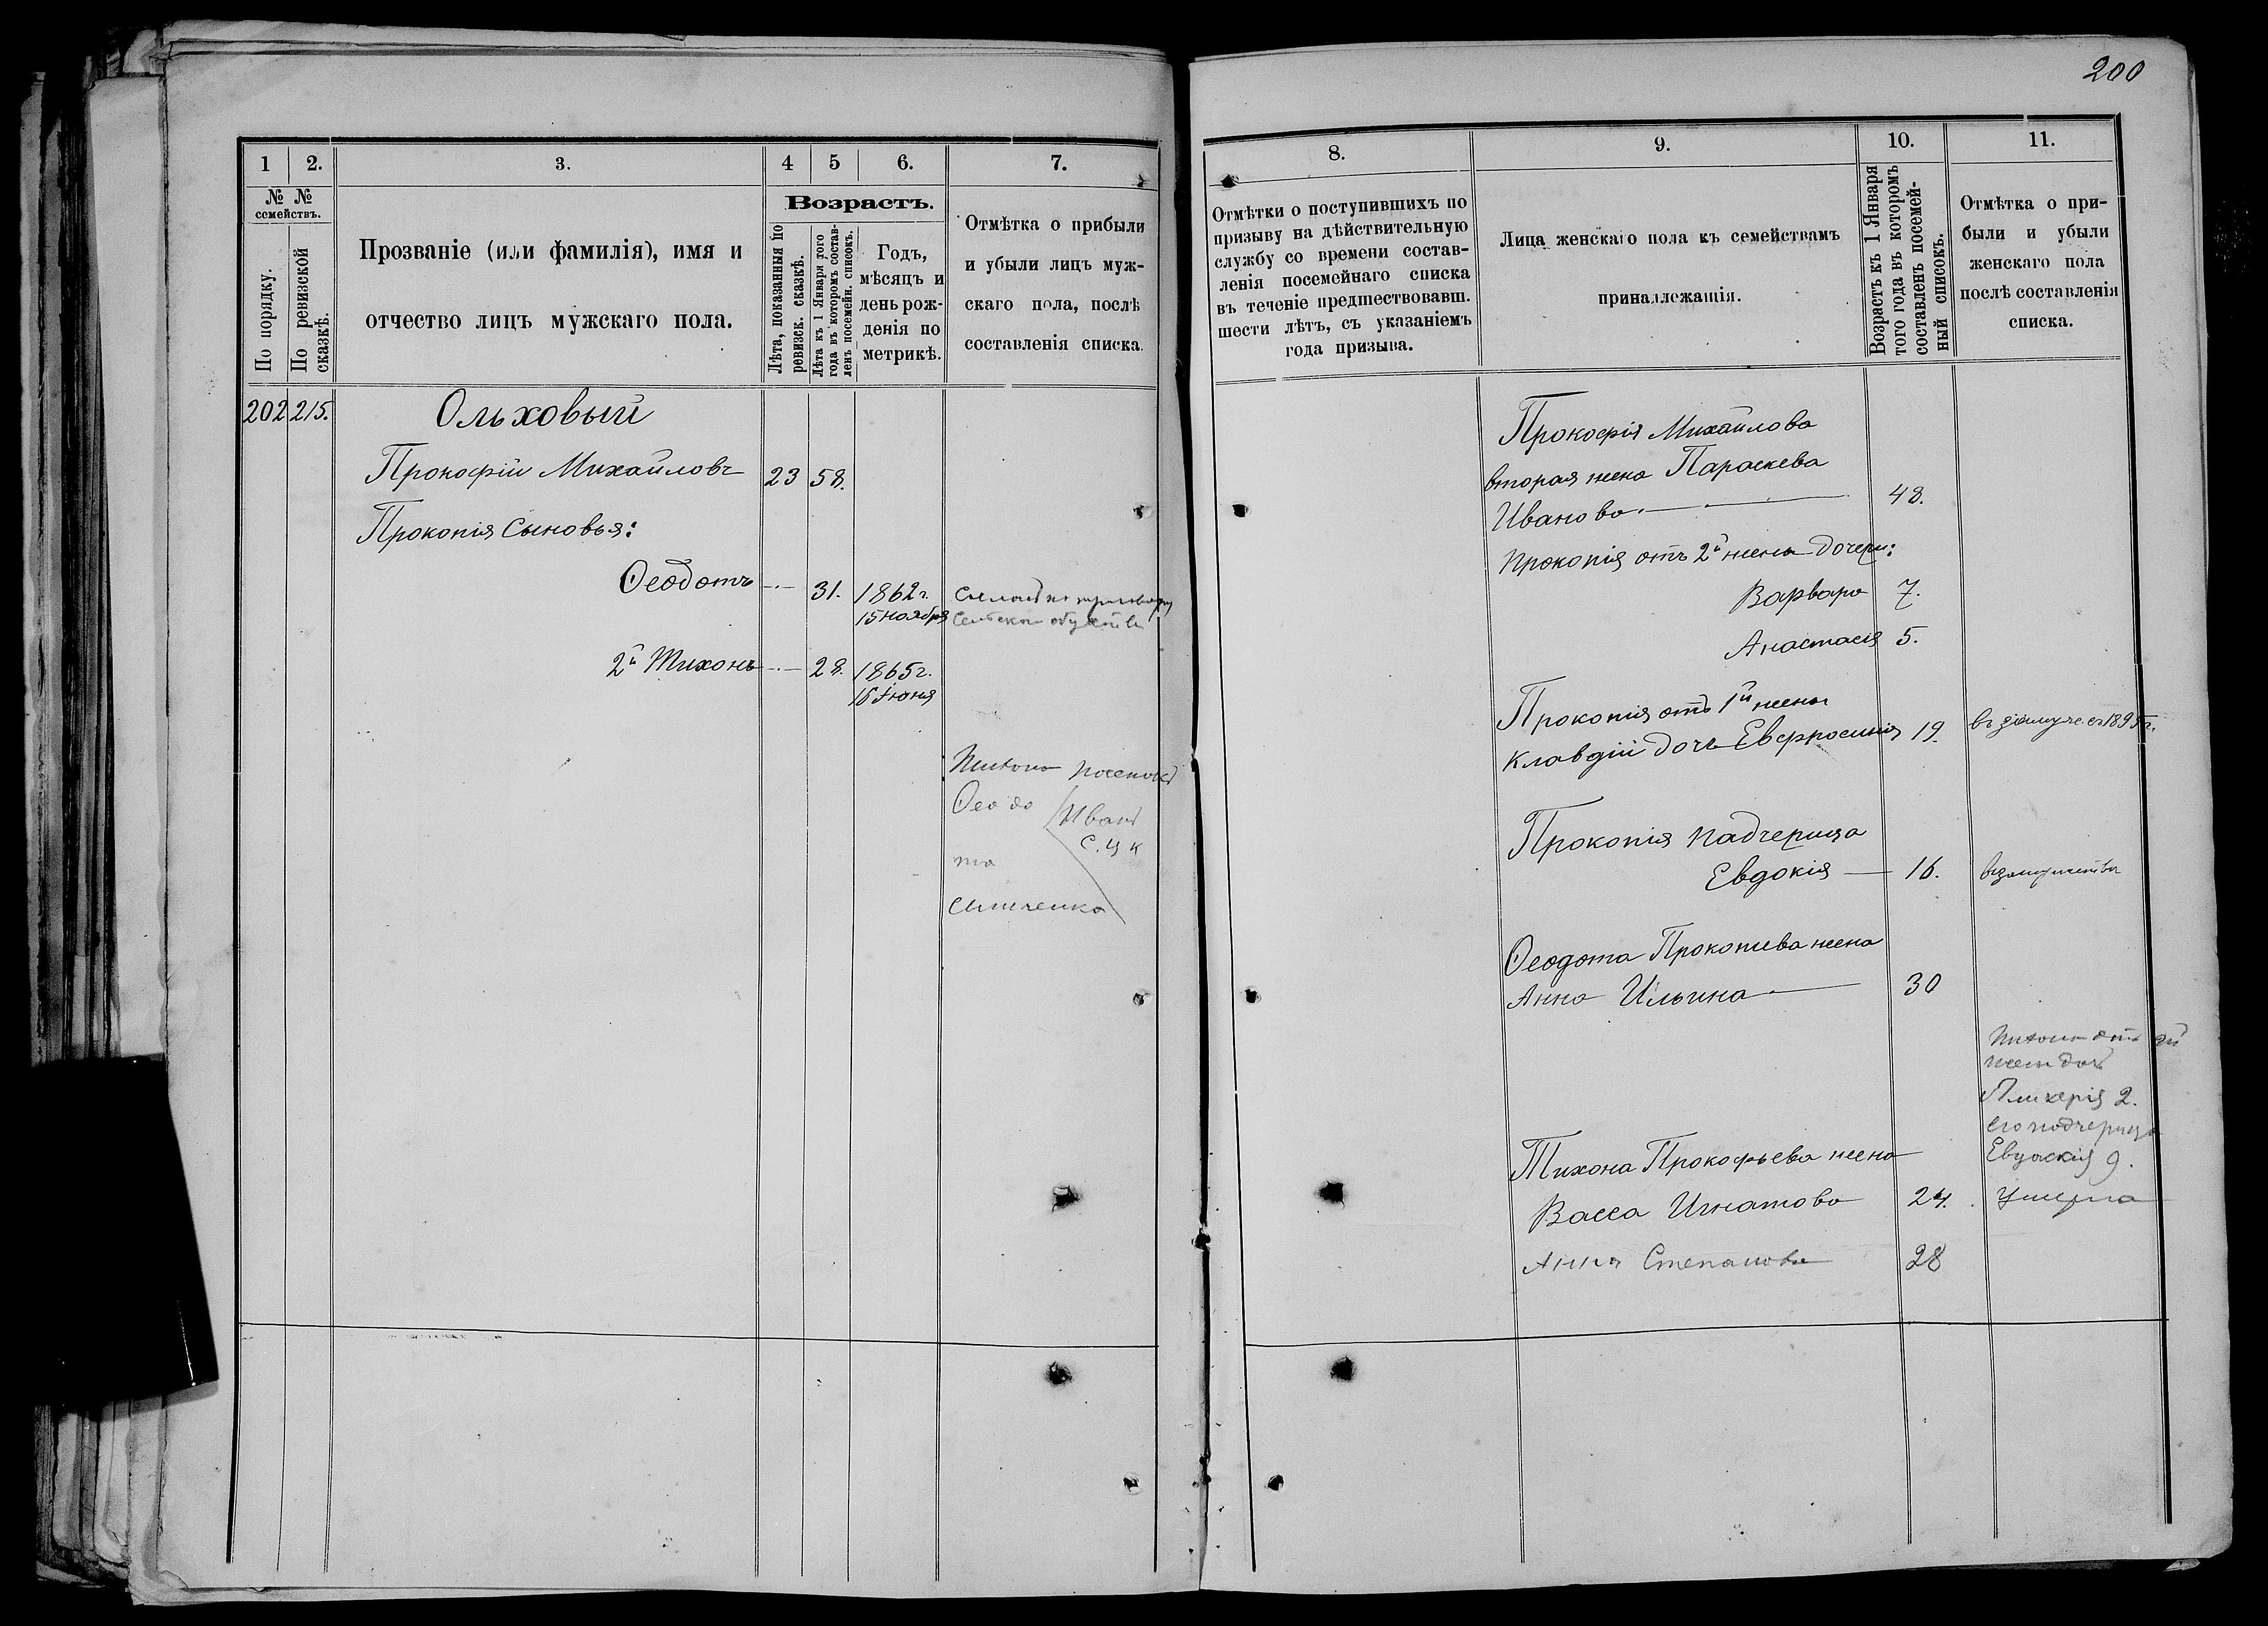 200
1 2. 3. 4 5 6. 7.
№ № семействъ.
По порядку.
По ревизской сказкѣ.
Прозваніе (или фамилія), имя и
отчество лицъ мужскаго пола.
Возрастъ.
Лѣта, показанныя по ревизск. сказкѣ.
Лѣта къ 1 Января того года въ которомъ составленъ посемейн. списокъ.
Годъ,
мѣсяцъ и
день рож-
денія по
метрикѣ.
Отмѣтка о прибыли
и убыли лицъ муж-
скаго пола, послѣ
составленія списка.
202 215. Ольховый
Прокофій Михайловъ 23 58.
Прокопія Сыновья:
Ѳеодотъ 31. 1862г. Сосланъ по приговору
15 ноября Сельскаго общества
2й Тихонъ 28. 1865г.
15 Іюня
Тихона
Ѳеодо Иванъ
та
8. 9. 10. 11.
Отмѣтки о поступившихъ по
призыву на дѣйствительную
службу со времени состав-
ленія посемейнаго списка
въ теченіе предшествовавш.
шести лѣтъ, съ указаніемъ
года призыва.
Лица женскаго пола къ семействамъ
принадлежащія.
Возрастъ къ 1 Января
того года въ которомъ
составленъ посемей-
ный списокъ.
Отмѣтка о при-
были и убыли
женскаго пола
послѣ составленія
списка.
Прокофія Михайлова
вторая жена Параскева
Иванова 48.
Прокопія отъ 2й жены дочери:
Варвара 7.
Анастасія 5.
Прокопія отъ 1й жены
Клавдій дочь Евфросинія 19. въ замуж. съ 1895г.
Прокопія падчерица
Евдокія 16. въ замужествѣ
Ѳеодота Прокопиева жена
Анна Ильина 30
Тихона отъ 2й
жен дочь
Гликерія 2.
его подчерица
Евдокія 9.
Тихона Прокофьева жена
Васса Игнатова 24. Умерла
Анна Степанова 28